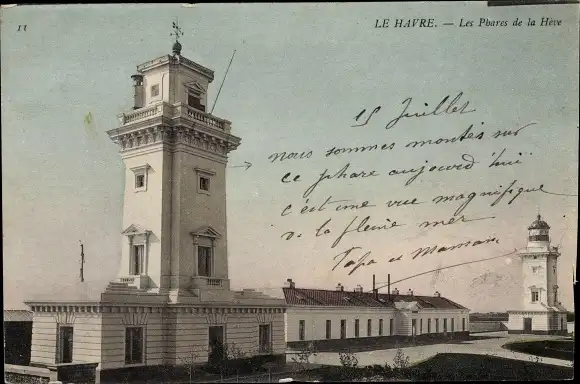 11
LE HAVRE. — Les Phares de la Hève
15 Juillet
nous sommes montés sur
ce phare aujourd'hui
c'est une vue magnifique
de la pleine mer
Papa et Maman